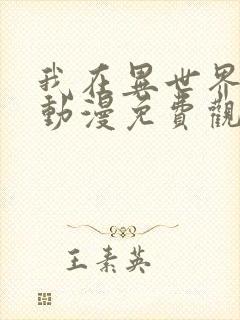 我在異世界
動漫免費觀
王素英